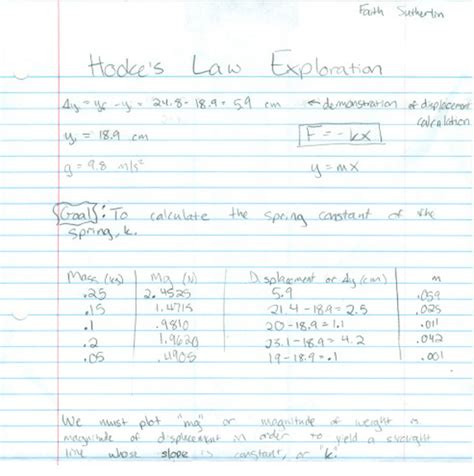 Faith Sutherlin
Hooke's Law Exploration
Δy = yf - yi = 24.8 - 18.9 = 5.9 cm ← demonstration of displacement calculation
yi = 18.9 cm F = -kx
g = 9.8 m/s² y = mx
Goal: To calculate the spring constant of the
spring, k.
Mass (kg) Mg (N) Displacement or Δy (cm) m
.25 2.4525 5.9 .059
.15 1.4715 21.4 - 18.9 = 2.5 .025
.1 .9810 20 - 18.9 = 1.1 .011
.2 1.9620 23.1 - 18.9 = 4.2 .042
.05 .4905 19 - 18.9 = .1 .001
We must plot "mg" or magnitude of weight vs.
magnitude of displacement in order to yield a straight
line whose slope is constant, or "k"